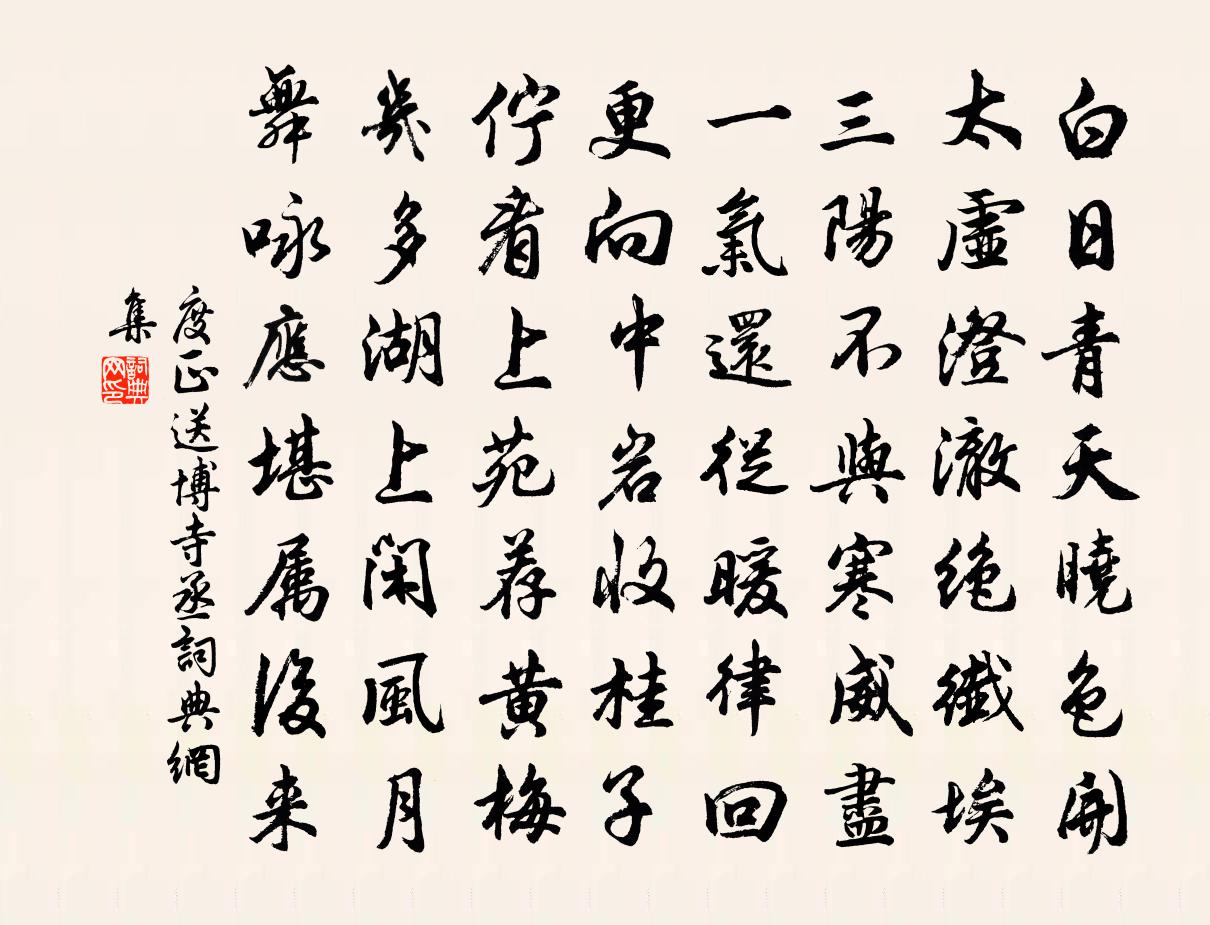 白日青天曉色開
太虛澄澈絶纖埃
三陽不與寒威盡
一氣還從暖律回
更向中岩收桂子
佇看上苑荐黄梅
幾多湖上閑風月
舞咏應堪属後来
度正送博寺丞詞典網
集
詞典
网印